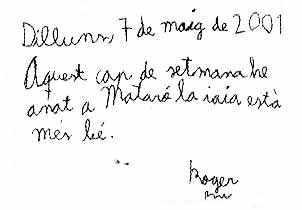 Dilluns, 7 de maig de 2001
Aquest cap de setmana he
anat a Mataró la iaia està
més bé.
Roger